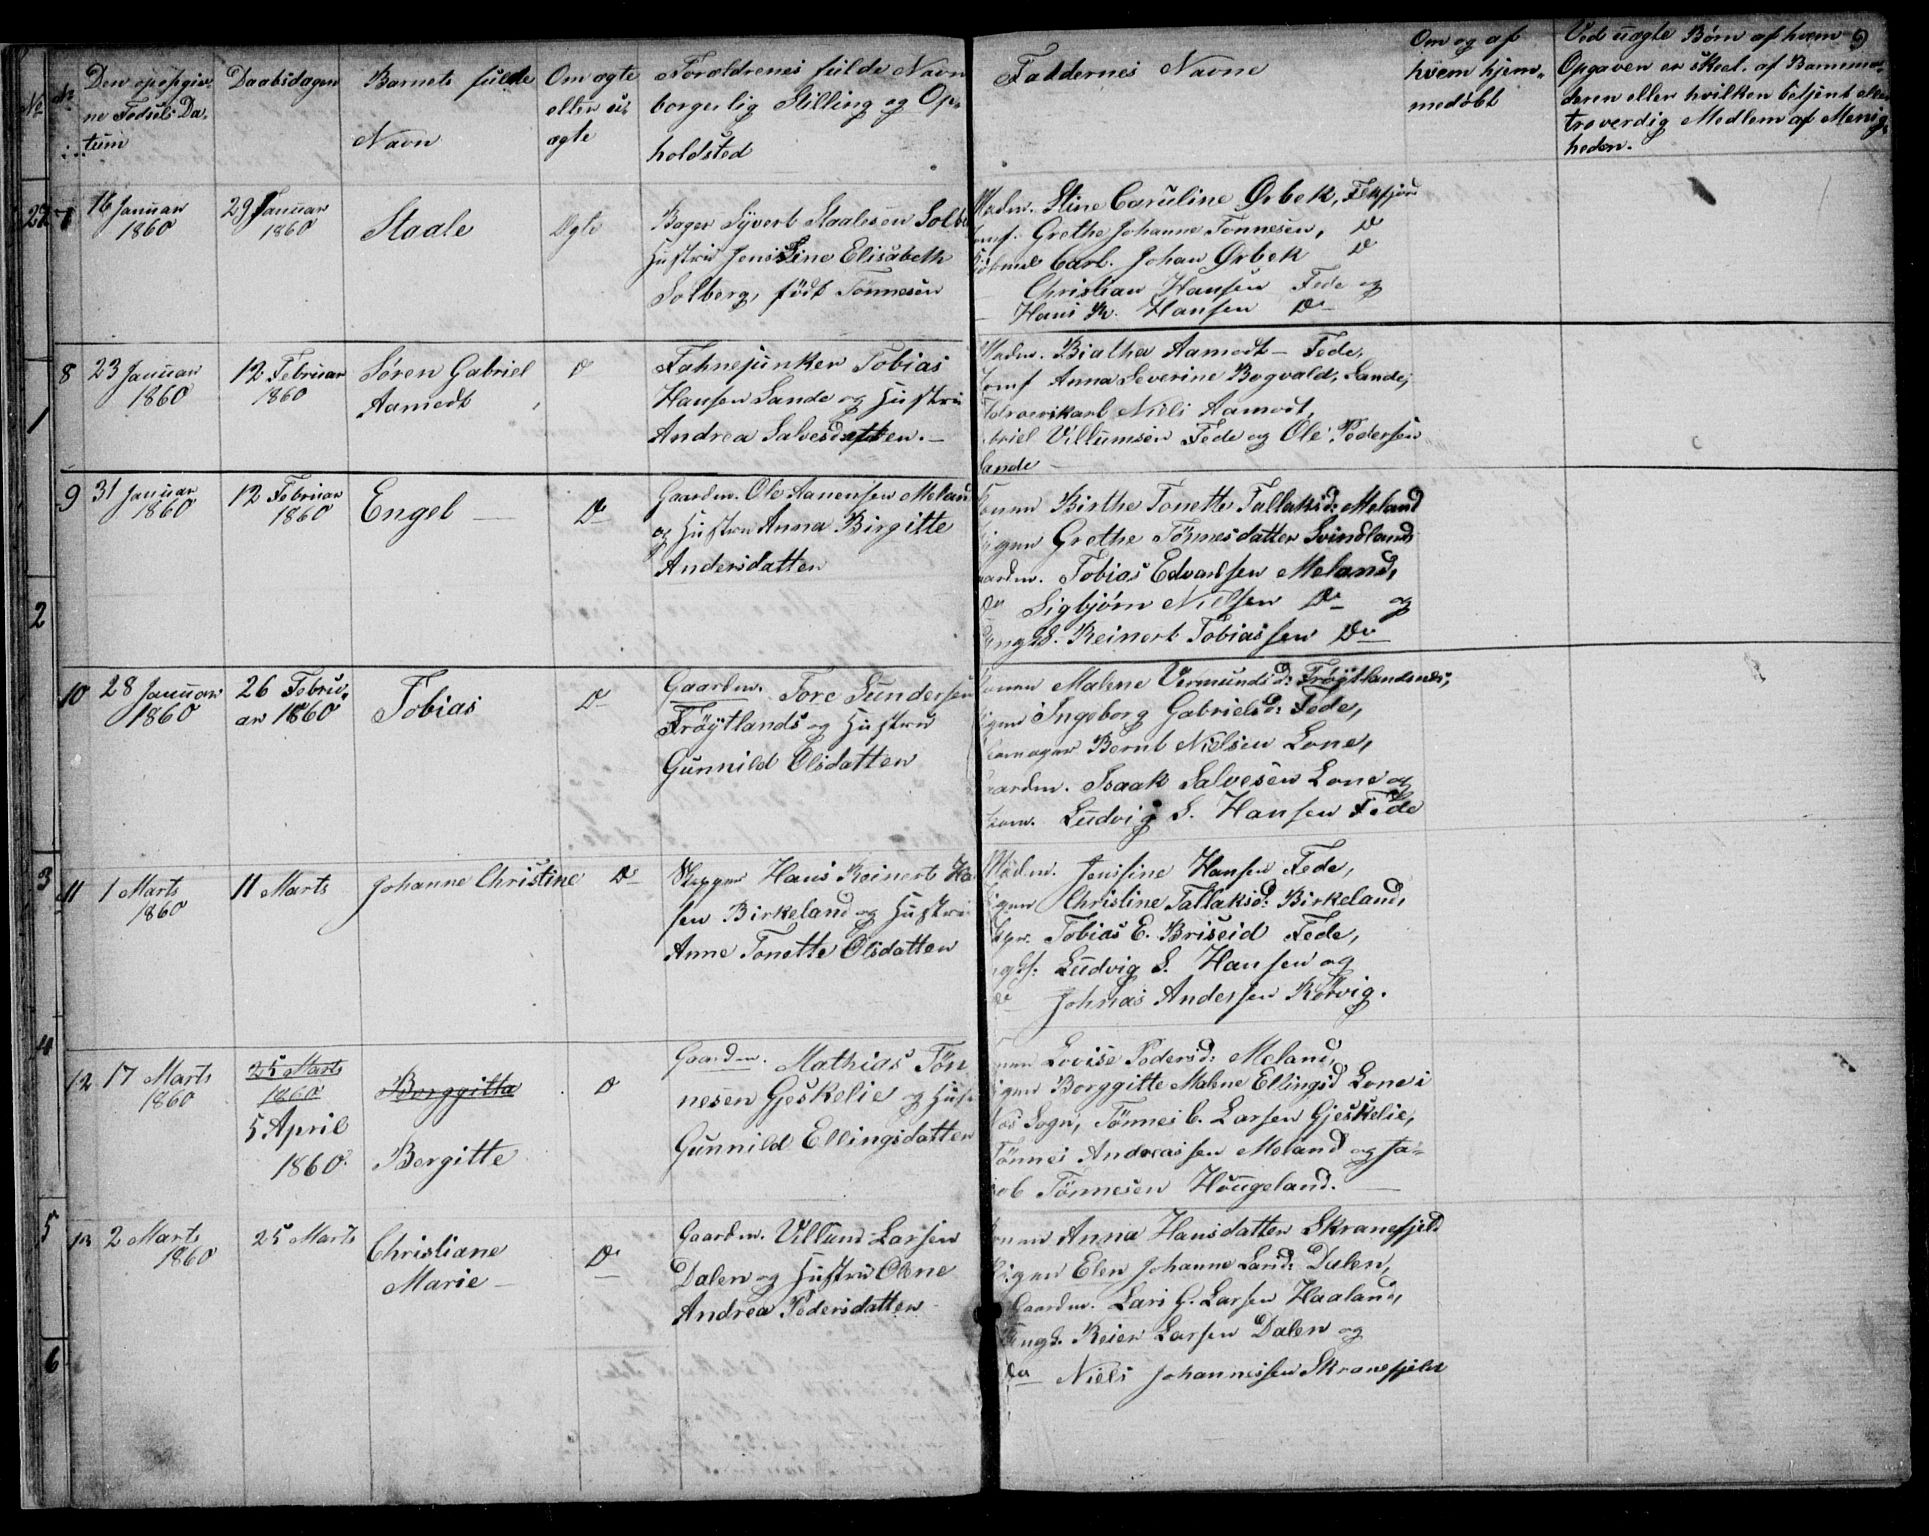 No
Den opgivne Fødsels Datum
Daabsdagen
Barnets fulde Navn
Om ægte eller uægte
Forældrenes fulde Navn borgerlig Stilling og Opholdsted
Faddernes Navne
Om og af hvem hjemmedøbt
Ved uægte Børn af hvem Opgaven er skeet, af Barnemoderen eller hvilken betjent eller troverdig Medlem af Menigheden.
9
16 Januar 1860
29 Januar 1860
Staale
Ægte
Bager Syvert Staalesen Solb
Hustru Jensine Elisabeth
Solberg, født Tønnesen
Madm. Stine Caruline Ørbek, Fekfjord
Jomf. Grethe Johanne Tønnesen, Do
Carl Johan Ørbek Do
Christian Hansen Fede og
Hans R. Hansen Do
8
23 Januar 1860
12 Februar 1860
Søren Gabriel
Aamodt
Do
Fahnejunker Tobias
Hansen Sande og Hustru
Andrea Salvesdatter.
Madm. Biatha Aamodt - Fede,
Jomf Anna Severine Bogvald, Sande,
Niels Aamodt,
Villumsen Fede og Ole Pedersen
Sande
9
31 Januar 1860
12 Februar 1860
Engel
Do
Gaardm. Ole Aanensen Melan
og Hustru Anna Birgitte
Andersdatter
Konen Birthe Tonette Tallaksd: Meland
Pigen Grethe Tönnesdatter Svindland
Gaardm. Tobias Edvardsen Meland,
Do Sigbjørn Nielsen Do og
Ungk. Reinert Tobiassen Do
10
28 Januar 1860
26 Februar 1860
Tobias
Do
Gaardm. Tore Gundersen
Frøytlands og Hustru
Gunnild Olsdatter
Konen Malene Vermundsd: Frøytlandsnes,
Pigen Ingeborg Gabrielsd: Fede,
Bernt Nielsen Lone,
Gaardm. Isaak Salvesen Lone og
Ludvig S. Hansen Fede
11
1 Marts 1860
11 Marts
Johanne Christine
Do
Skipper Hans Reinert Ha
sen Birkeland og Hustru
Anne Tonette Olsdatter
Madm. Jensine Hansen Fede,
Pigen Christine Tallaksd: Birkeland,
Skpr. Tobias E. Briseid Fede,
Ludvig S. Hansen og
Do Johnas Andersen Rørvig.
12
17 Marts 1860
25 Marts 1860
5 April 1860.
Borggitta
Bergitte
Do
Gaardm. Mathias Tön
nesen Gjeskelie og Hust
Gunnild Ellingsdatter
Konen Lovise Pedersd: Meland,
Pigen Borggitte Malene Ellingsd Lone i
Næs Sogn, Tønnes C. Larsen Gjeskelie,
Tønnes Andreassen Meland og Ja-
kob Tønnesen Hougeland.
13
2 Marts 1860
25 Marts
Christiane
Marie
Do
Gaardm. Villund Larsen
Dalen og Hustru Olene
Andrea Pedersdatter
Konen Anna Hansdatter Skranefjeld
Pigen Elen Johanne Larsd: Dalen,
Gaardm. Lars G. Larsen Haaland,
Ungk. Reier Larsen Dalen og
Do Niels Johannessen Skranefjeld
1
2
3
4
5
6